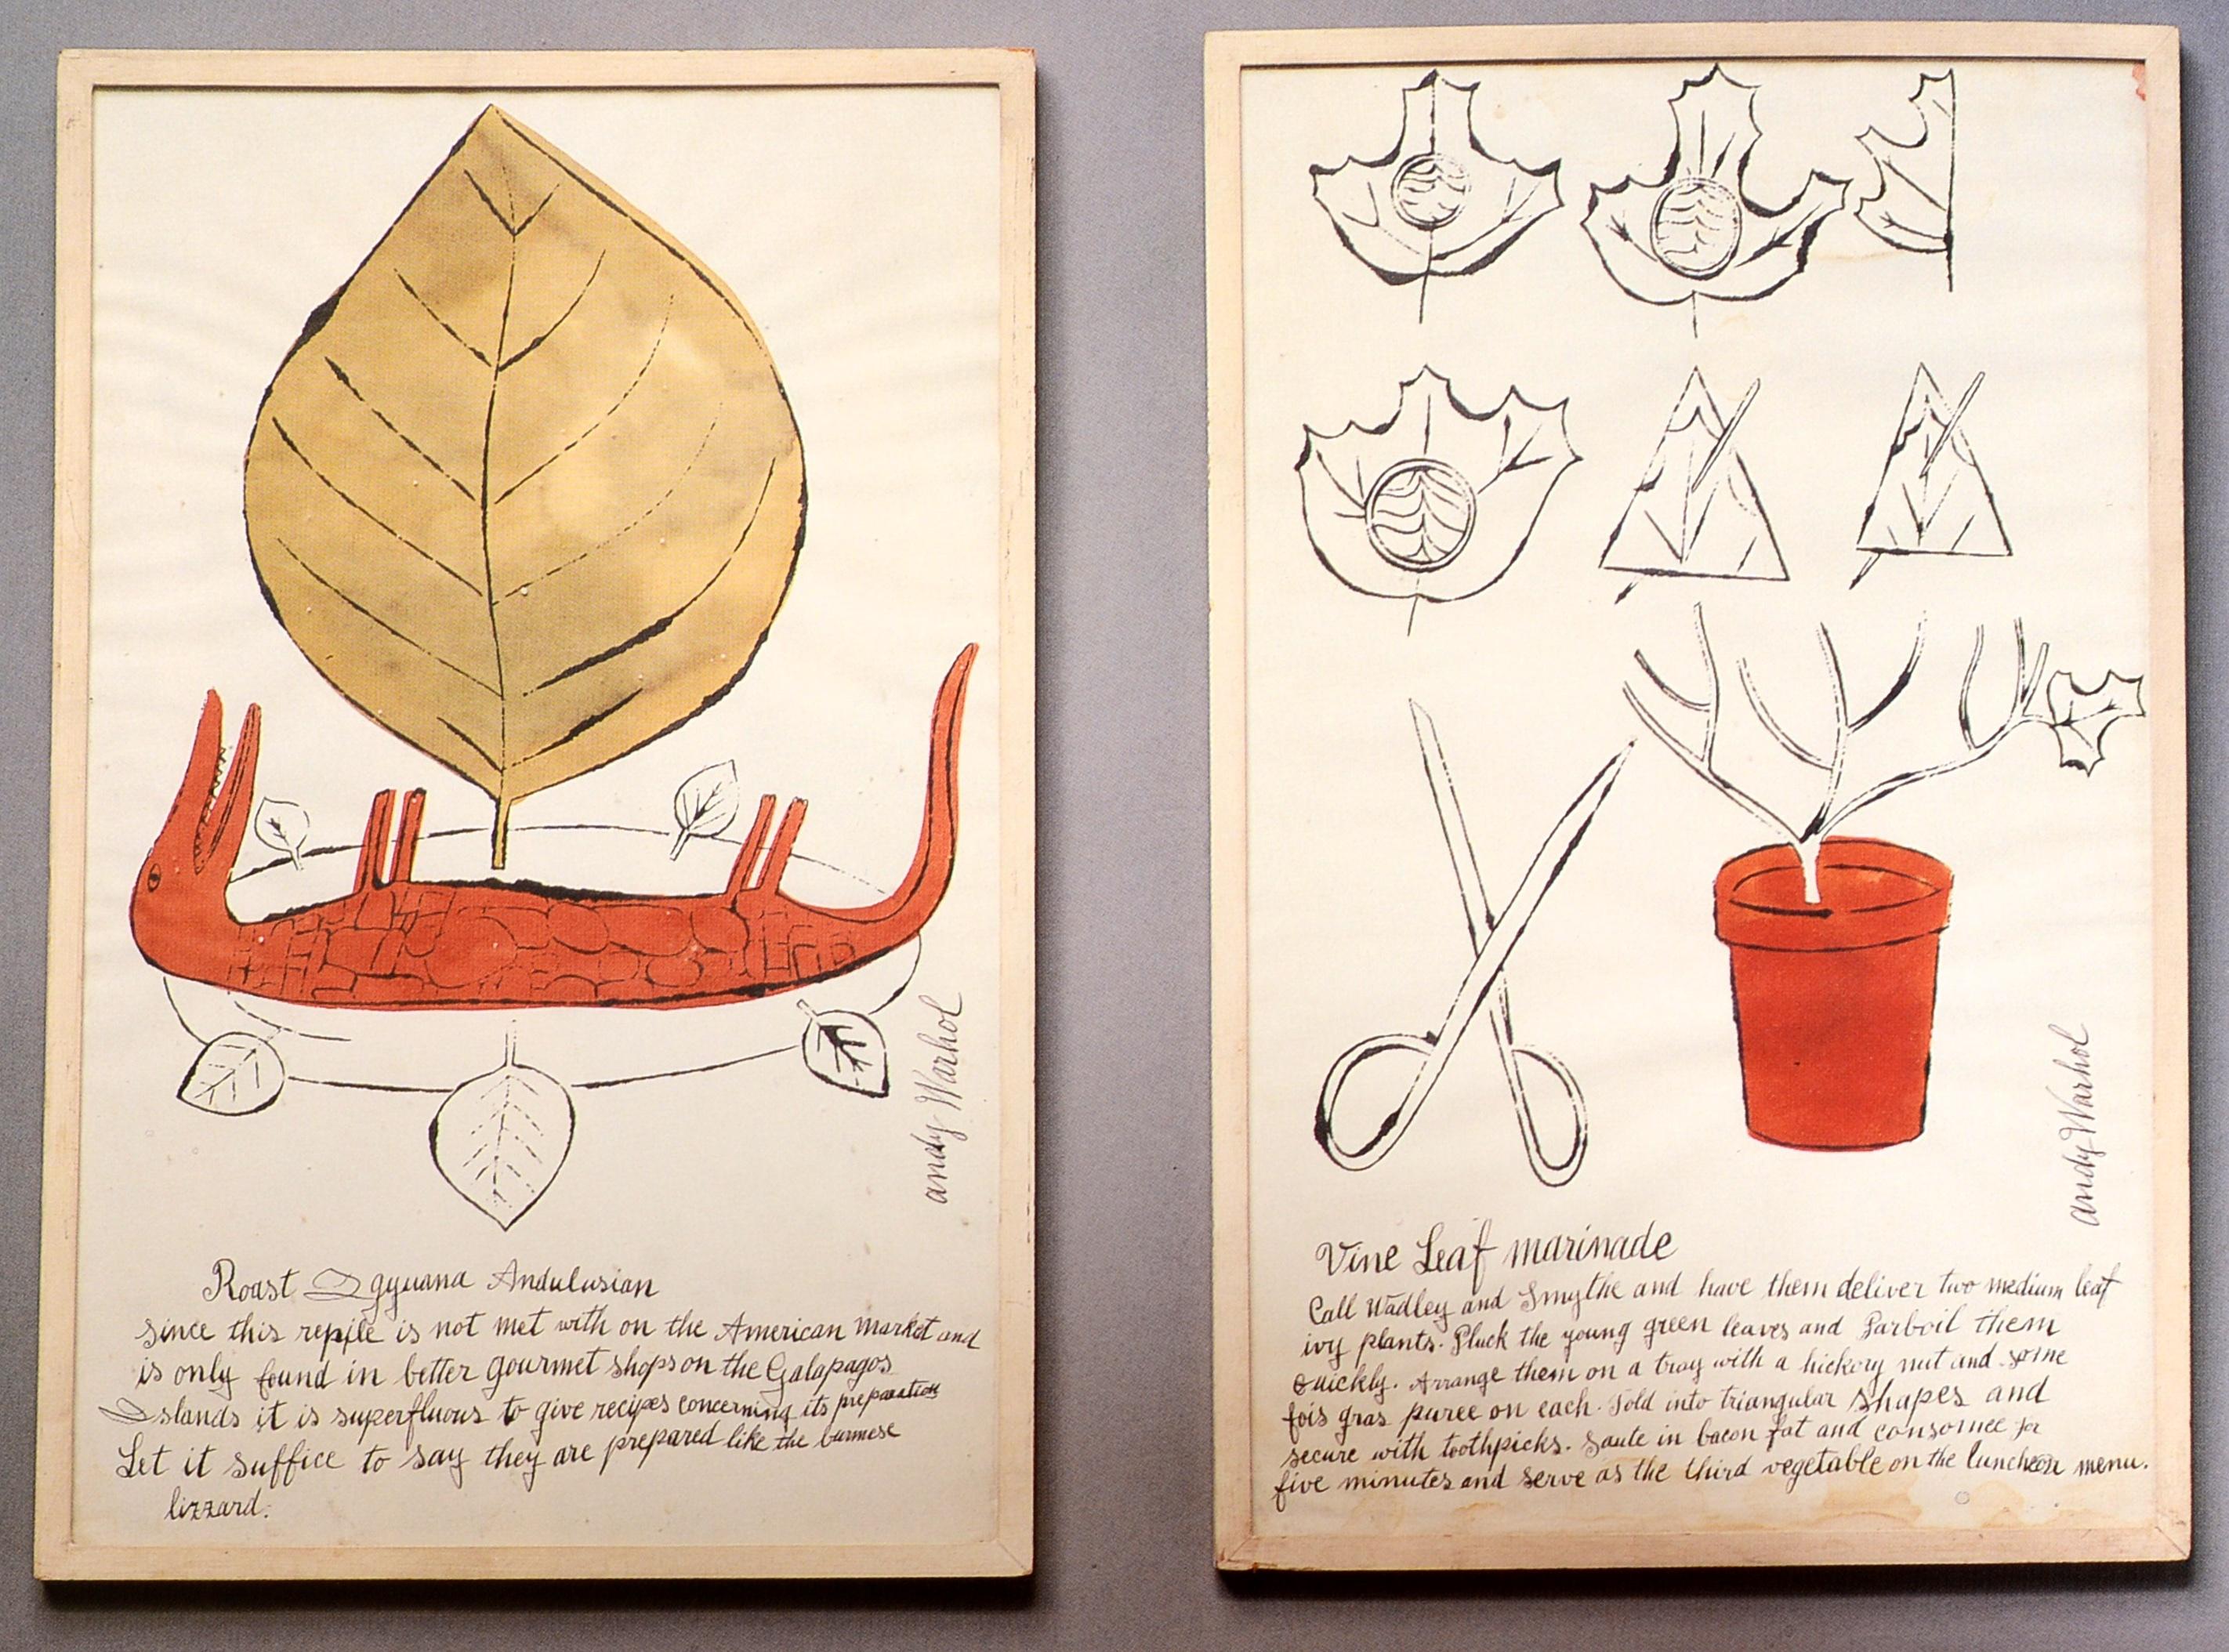 andy Warhol
Roast Igyuana Andulusian
since this repile is not met with on the American market and
is only found in better gourmet shops on the Galapagos
Islands it is superfluous to give recipes concerning its preparation
Let it suffice to say they are prepared like the burmese
lizzard.
andy Warhol
Vine Leaf marinade
Call Wadley and Smythe and have them deliver two medium leaf
ivy plants. Pluck the young green leaves and Parboil them
quickly. Arrange them on a tray with a hickory nut and some
fois gras puree on each. Fold into triangular shapes and
secure with toothpicks. Saute in bacon fat and consomee for
five minutes and serve as the third vegetable on the luncheon menu.